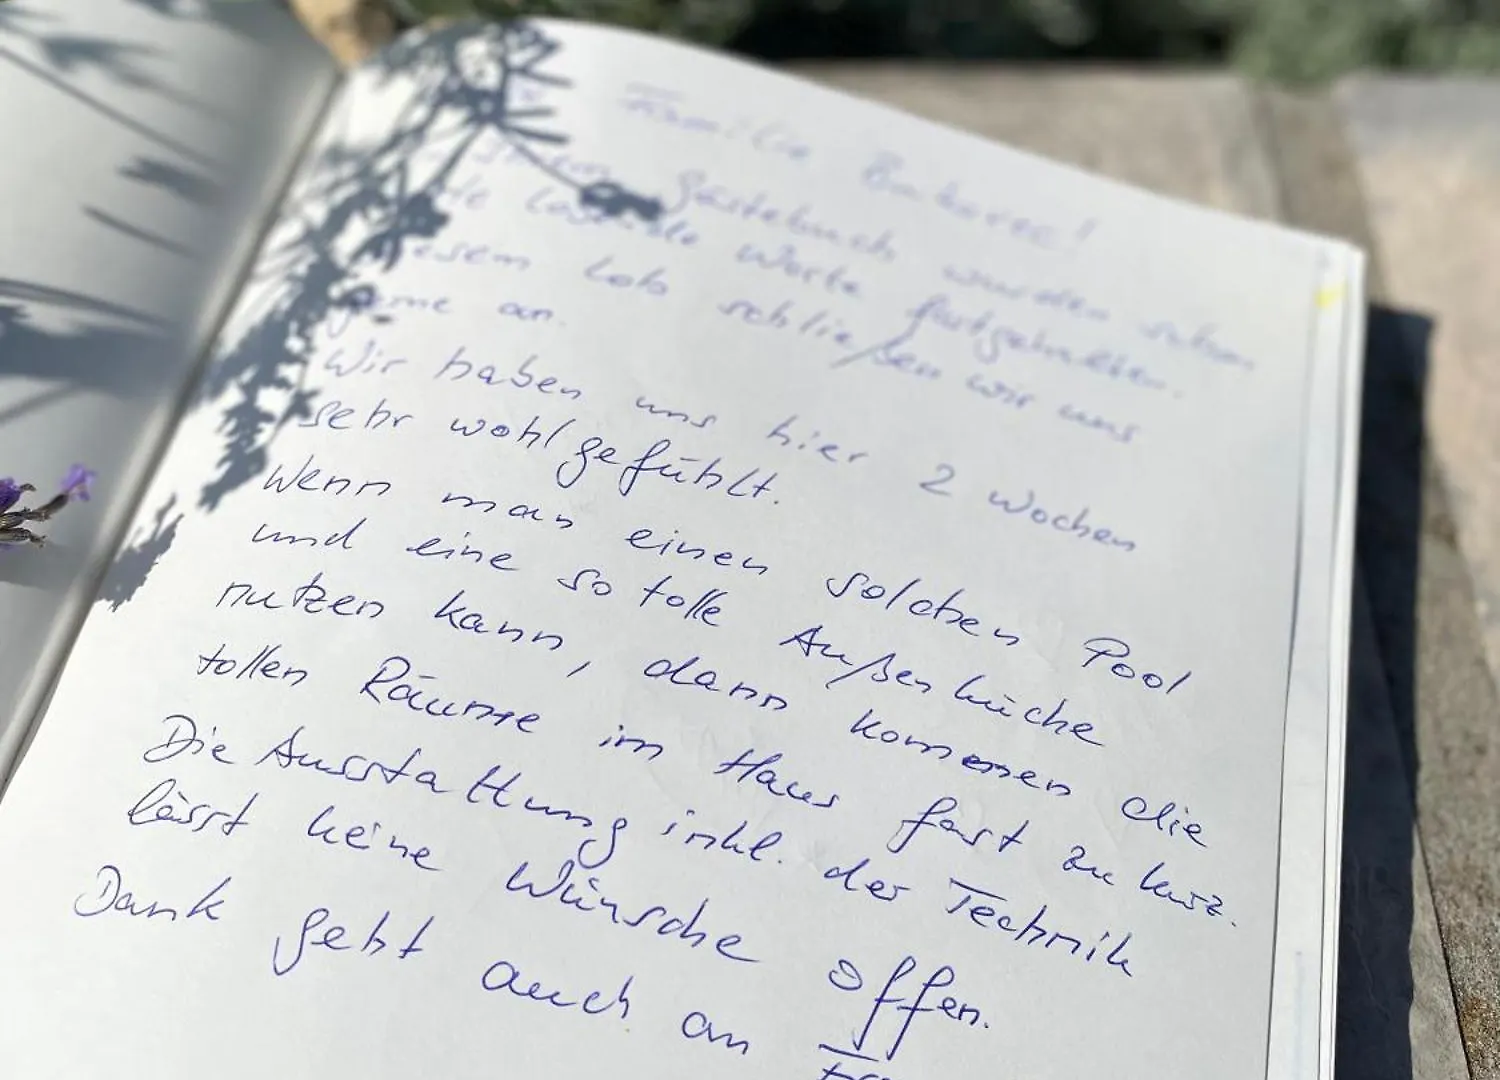 Familie
Gästebuch wurden schon
Worte festgehalten.
diesem Lob schließen wir uns
gerne an.
Wir haben uns hier 2 Wochen
sehr wohlgefühlt.
Wenn man einen solchen Pool
und eine so tolle Außenküche
nutzen kann, dann kommen die
tollen Räume im Haus fast zu kurz.
Die Ausstattung inkl. der Technik
lässt keine Wünsche offen.
Dank geht auch an